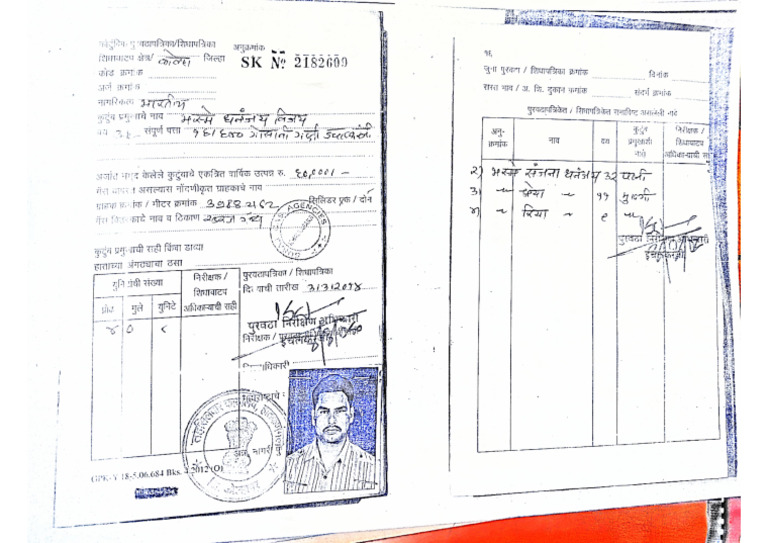 कौटुंबिक पुरवठापत्रिका/शिधापत्रिका
अनुक्रमांक
शिधावाटप क्षेत्र/ कोल्हा जिल्हा
SK Nº 2182600
फोर्ड क्रमांक
अर्ज क्रमांक
नागरिकत्व भारतीय
कुटुंब प्रमुखाचे नाव भस्मे धनंजय विजय
वय ३८ संपूर्ण पत्ता
अर्जात नमूद केलेले कुटुंबाचे एकत्रित वार्षिक उत्पन्न रु. ६०,०००/-
गॅस वापरत असल्यास नोंदणीकृत ग्राहकाचे नाव
ग्राहक क्रमांक / मीटर क्रमांक सिलिंडर एक / दोन
गॅस वितरकाचे नाव व ठिकाण
GAS AGENCIES
कुटुंब प्रमुखाची सही किंवा डाव्या
हाताच्या अंगठ्याचा ठसा
युनिटांची संख्या
निरीक्षक / शिधावाटप अधिकाऱ्याची सही
प्रौढ मुले युनिटे
४ ० ८
पुरवठापत्रिका / शिधापत्रिका
दिल्याची तारीख ३/३/२०१४
पुरवठा निरीक्षण अधिकारी
इचलकरंजी
निरीक्षक / पुरवठा
GPK-Y 18-5.06.684 Bks. 4.2012 (O)
१६
जुना पुरवठा / शिधापत्रिका क्रमांक दिनांक
रास्त भाव / अ. शि. दुकान क्रमांक संदर्भ क्रमांक
पुरवठापत्रिकेत / शिधापत्रिकेत समाविष्ट असलेली नावे
अनु-क्रमांक नाव वय कुटुंब प्रमुखाशी नाते निरीक्षक / शिधावाटप अधिकाऱ्याची स
२) भस्मे संजना धनंजय ३२ पत्नी
३) " श्रेया " ११ मुलगी
४) " रिया " ९ "
पुरवठा निरीक्षण अधिकारी
इचलकरंजी